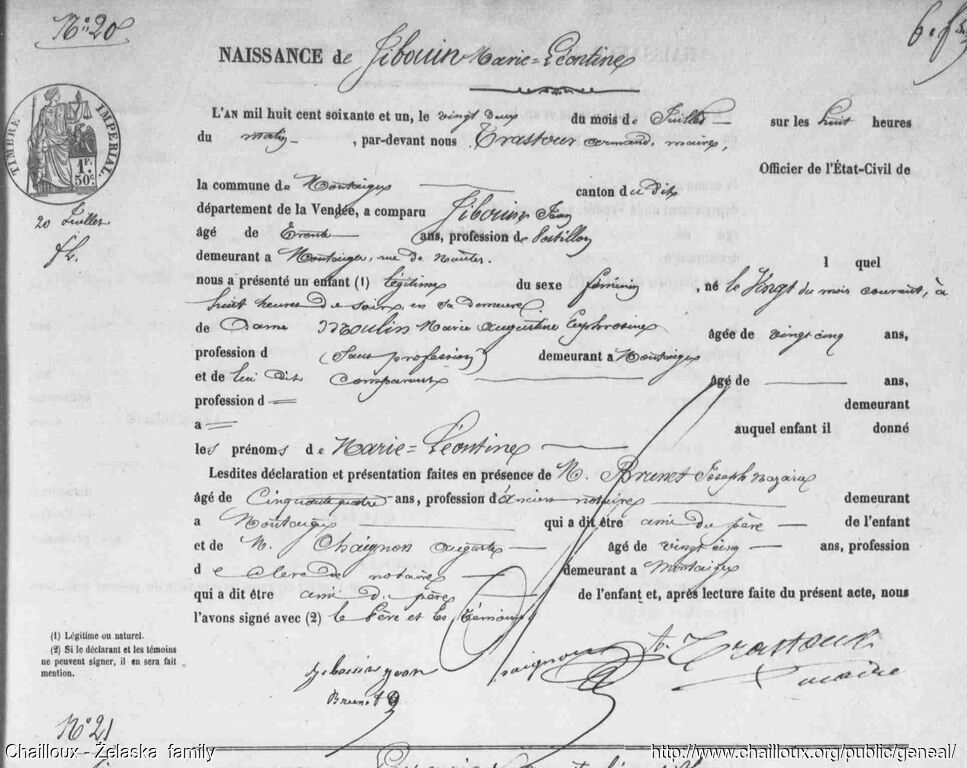 N° 20
NAISSANCE de Jibouin Marie=Léontine
TIMBRE IMPERIAL.
1 F. 50 c.
L'AN mil huit cent soixante et un, le vingt deux du mois de Juillet sur les huit heures
du matin, par-devant nous Trastour Armand, maire,
Officier de l'État-Civil de
la commune de Montaigu canton du dit
département de la Vendée, a comparu Jibouin Jean
20 Juillet
âgé de Trente ans, profession de Postillon
demeurant a Montaigu, rue de Nantes. l quel
nous a présenté un enfant (1) légitime du sexe féminin, né le Vingt du mois courant, à
huit heures du soir, en sa demeure
de Dame Moulin Marie Augustine Euphrosine âgée de vingt cinq ans,
profession d (Sans profession) demeurant a Montaigu
et de lui dit comparant âgé de ans,
profession d = demeurant
a = auquel enfant il donné
les prénoms de Marie=Léontine
Lesdites déclaration et présentation faites en présence de M. Brunet Joseph Nazaire
âgé de Cinquante quatre ans, profession d'ancien notaire demeurant
a Montaigu qui a dit être ami du père de l'enfant
et de M. Chaignon Auguste âgé de vingt cinq ans, profession
de clerc de notaire demeurant a Montaigu
qui a dit être ami du père de l'enfant et, après lecture faite du présent acte, nous
l'avons signé avec (2) le Père et les Témoins
(1) Légitime ou naturel.
(2) Si le déclarant et les témoins
ne peuvent signer, il en sera fait
mention.
A. Trastour
maire
Brunet
N° 21
Chailloux - Żelaska family
http://www.chailloux.org/public/geneal/